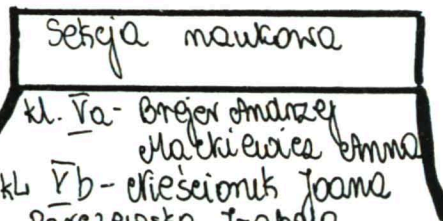 Sekcja naukowa
kl. Va - Brejer Andrzej
Mackiewicz Anna
kl. Vb - Nieścioruk Joana